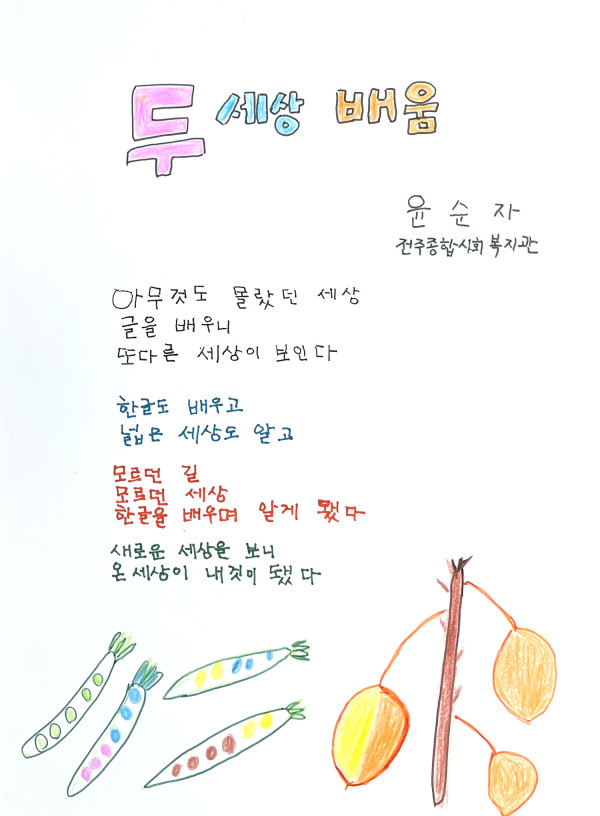 두 세상 배움
윤순자
전주종합사회복지관
아무것도 몰랐던 세상
글을 배우니
또다른 세상이 보인다
한글도 배우고
넓은 세상도 알고
모르던 길
모르던 세상
한글을 배우며 알게 됐다
새로운 세상을 보니
온세상이 내것이 됐다